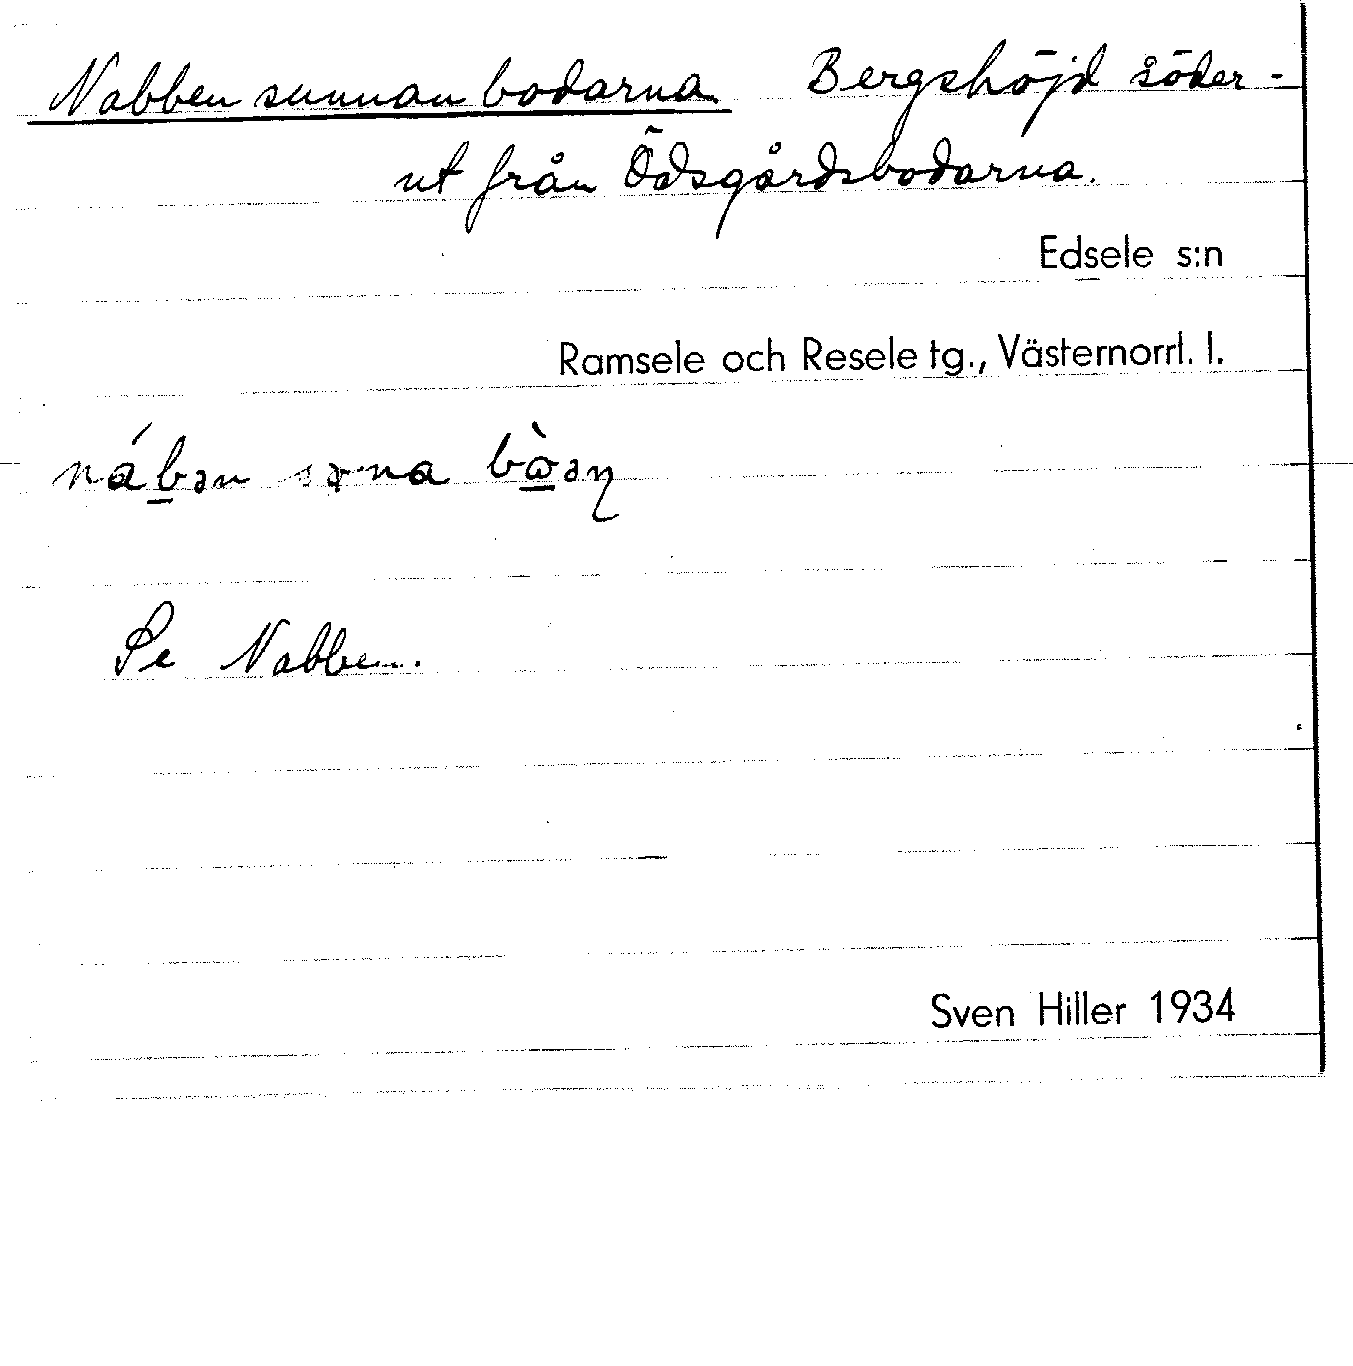 Nabben sunnan bodarna Bergshöjd söder-
ut från Ödsgårdsbodarna.
Edsele s:n
Ramsele och Resele tg., Västernorrl. l.
Se Nabben.
Sven Hiller 1934